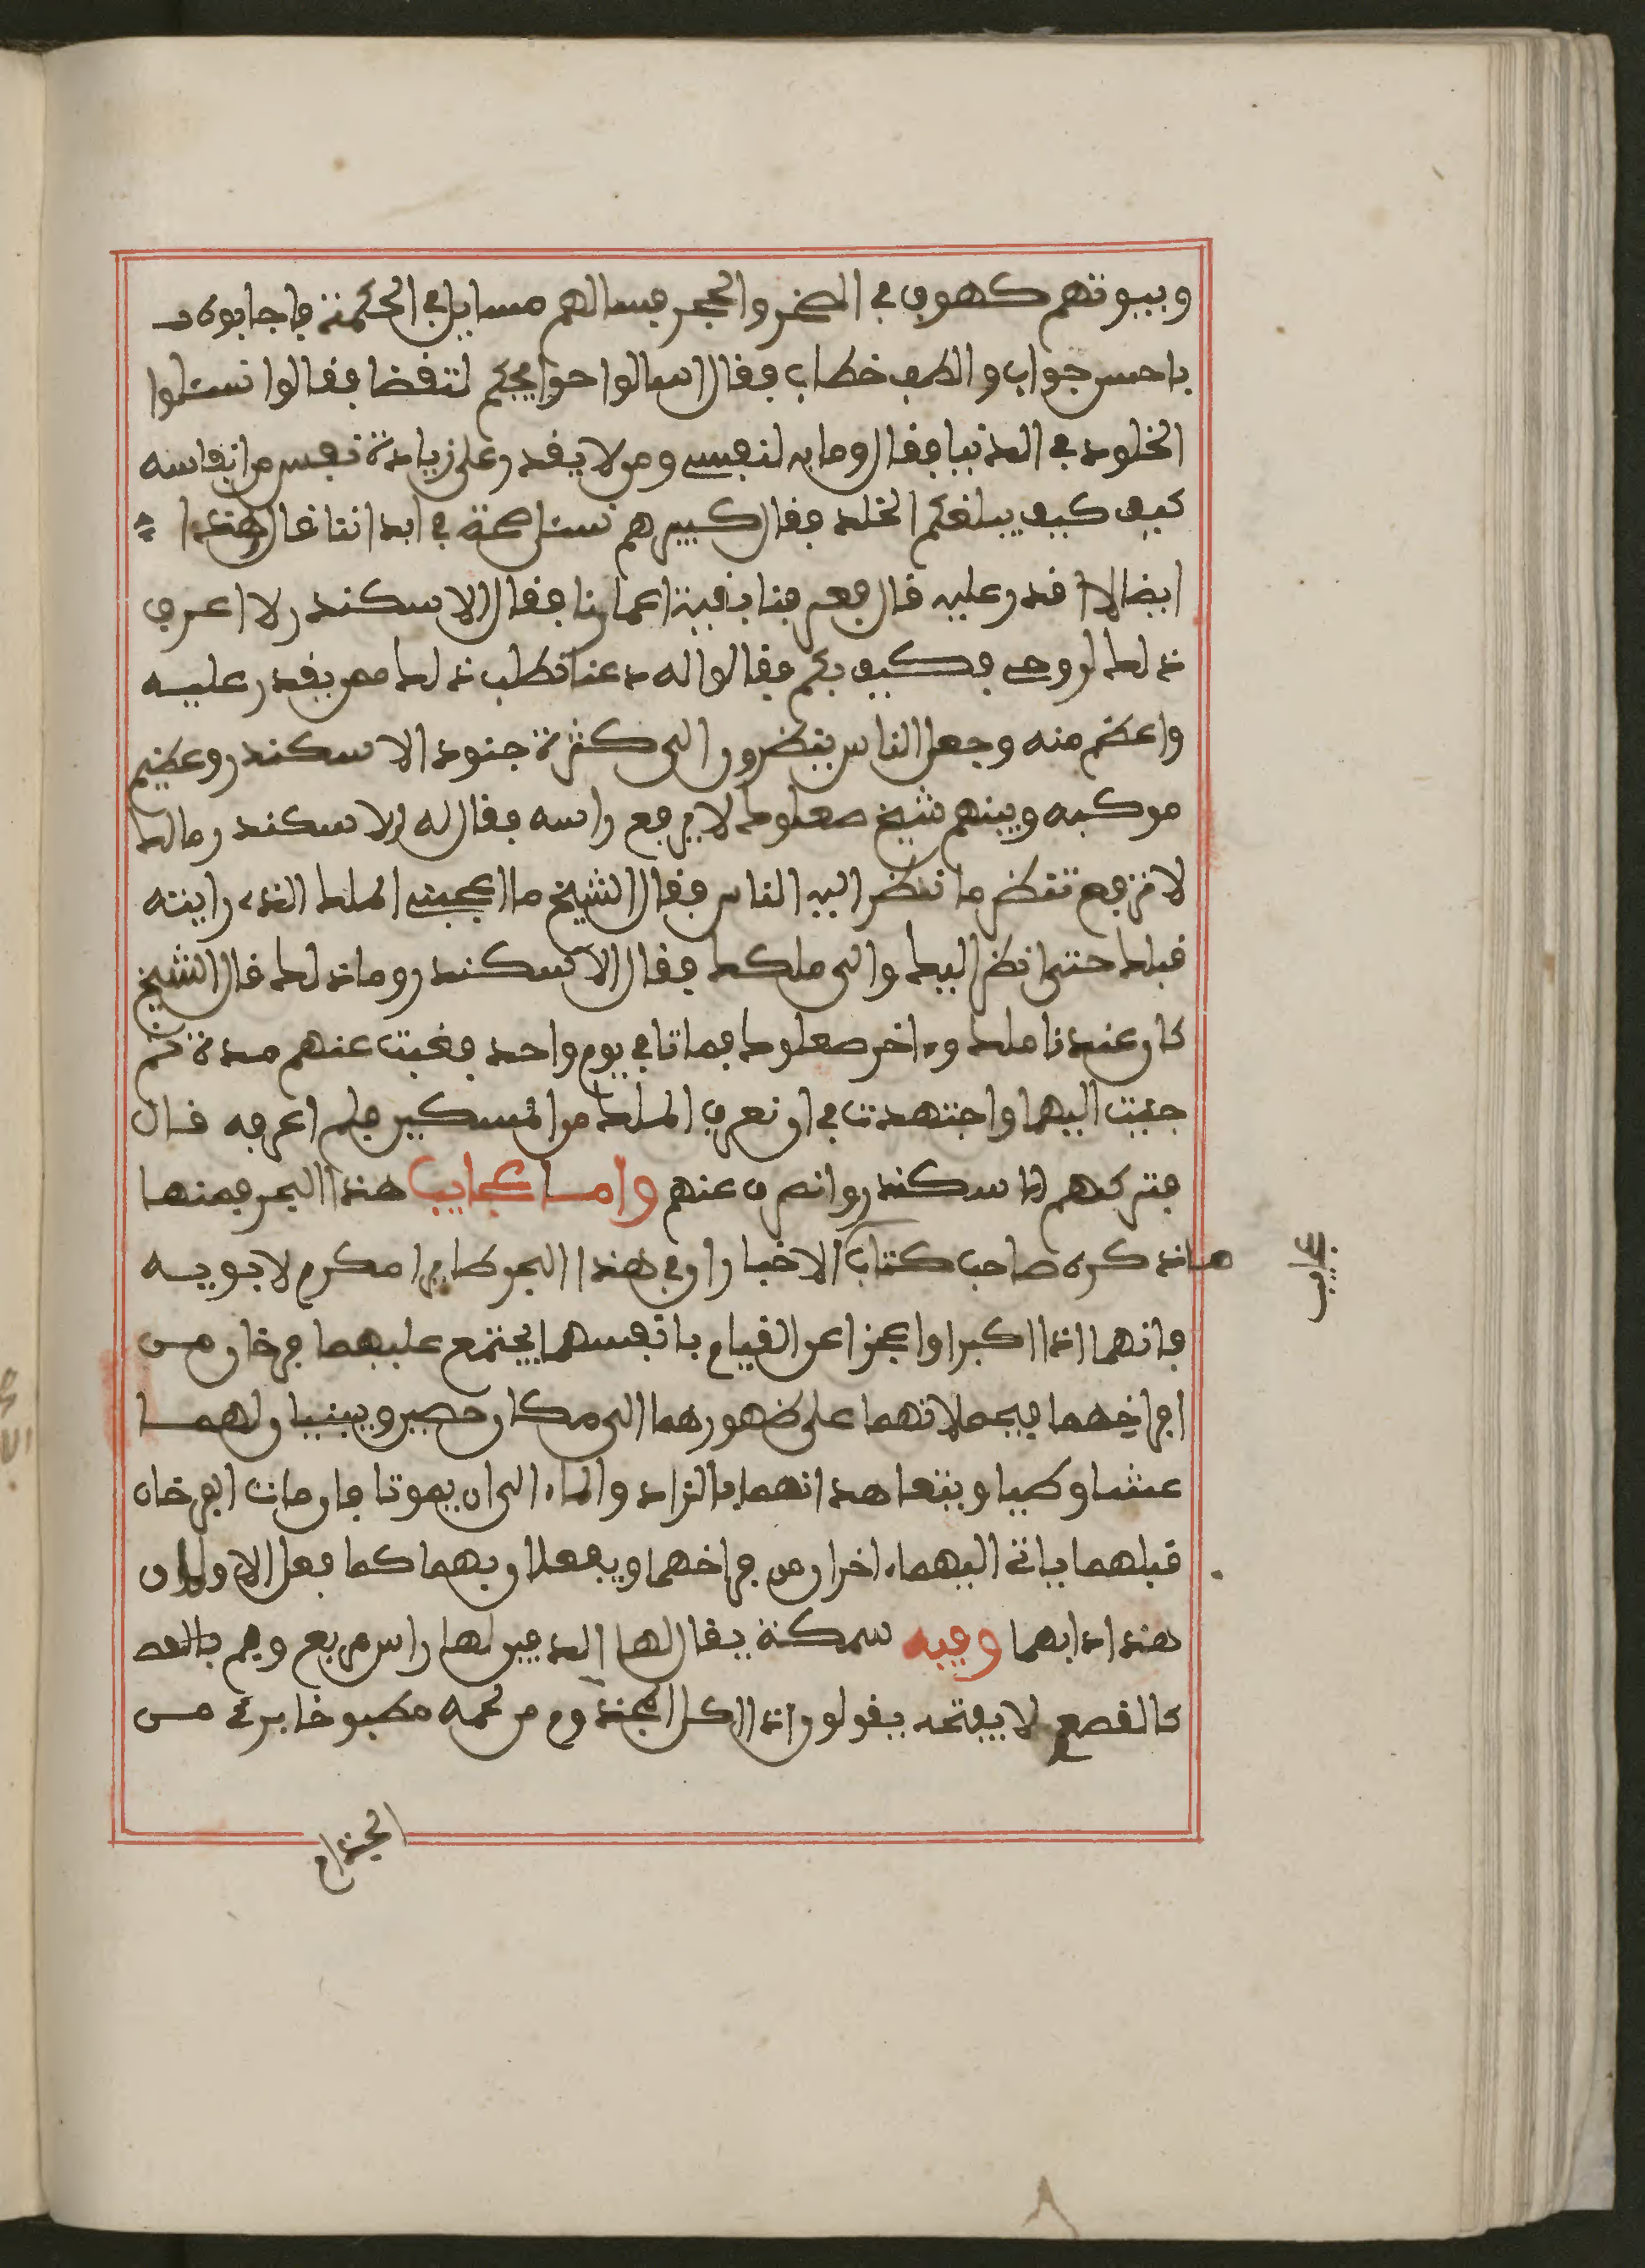 وبيوتهم كهوف في الصخر والحجر فسالهم مسايل في الحكمة فاجابوه
باحسن جواب والطف خطاب فقال اسالوا حوايجكم لتقضا فقالوا نسئلوا
الخلود في الدنيا فقال وما به لنفسي ومن لا يقدر على زيادة نفس من انفاسه
كيف كيف يبلغكم الخلد فقال كبيرهم نسئل صحة في ابداننا قال هذا
ايضا لا اقدر عليه قال فعرفنا بقية اعمارنا فقال الاسكندر لا اعرف
ذلك لروحي فكيف بكم فقالوا له دعنا نطلب ذلك ممن يقدر عليه
واعظم منه وجعل الناس ينظرون الى كثرة جنود الاسكندر وعظيم
موكبه وبينهم شيخ صعلوك لا يرفع راسه فقال له الاسكندر مالك
لا ترفع تنظر ما تنظر اليه الناس فقال الشيخ ما اعجبني الملك الذي رايته
قبلك حتى انظر اليك والى ملكك فقال الاسكندر وما ذلك قال الشيخ
كان عندنا ملك وءاخر صعلوك فماتا في يوم واحد فغبت عنهم مدة ثم
جيت اليهما واجتهدت في ان نعرف الملك من المسكين فلم اعرفه قال
فتركهم الاسكندر وانصرف عنهم واما عجايب هذا البحر فمنها
ما ذكره صاحب كتاب الاخبار ان في هذا البحر طايرا مكرم لابويه
فانهما اذا اكبرا واعجزا عن القيام بانفسهما يجتمع عليهما فرخان من
افراخهما فيحملانهما على ظهورهما الى مكان حصين ويبنيان لهما
عشا وطيا ويتعاهدانهما بالزاد والماء الى ان يموتا فان مات الفرخان
قبلهما ياتي اليهما ءاخران من فراخهما ويفعلان بهما كما فعل الاولان
هذا دابهما وفيه سمكة يقال لها الدفين لها راس مربع وفم
كالقصع لا يفتحه يقولون اذا اكل المجذوم من لحمه مطبوخا برئ من
الجذام
عجايب